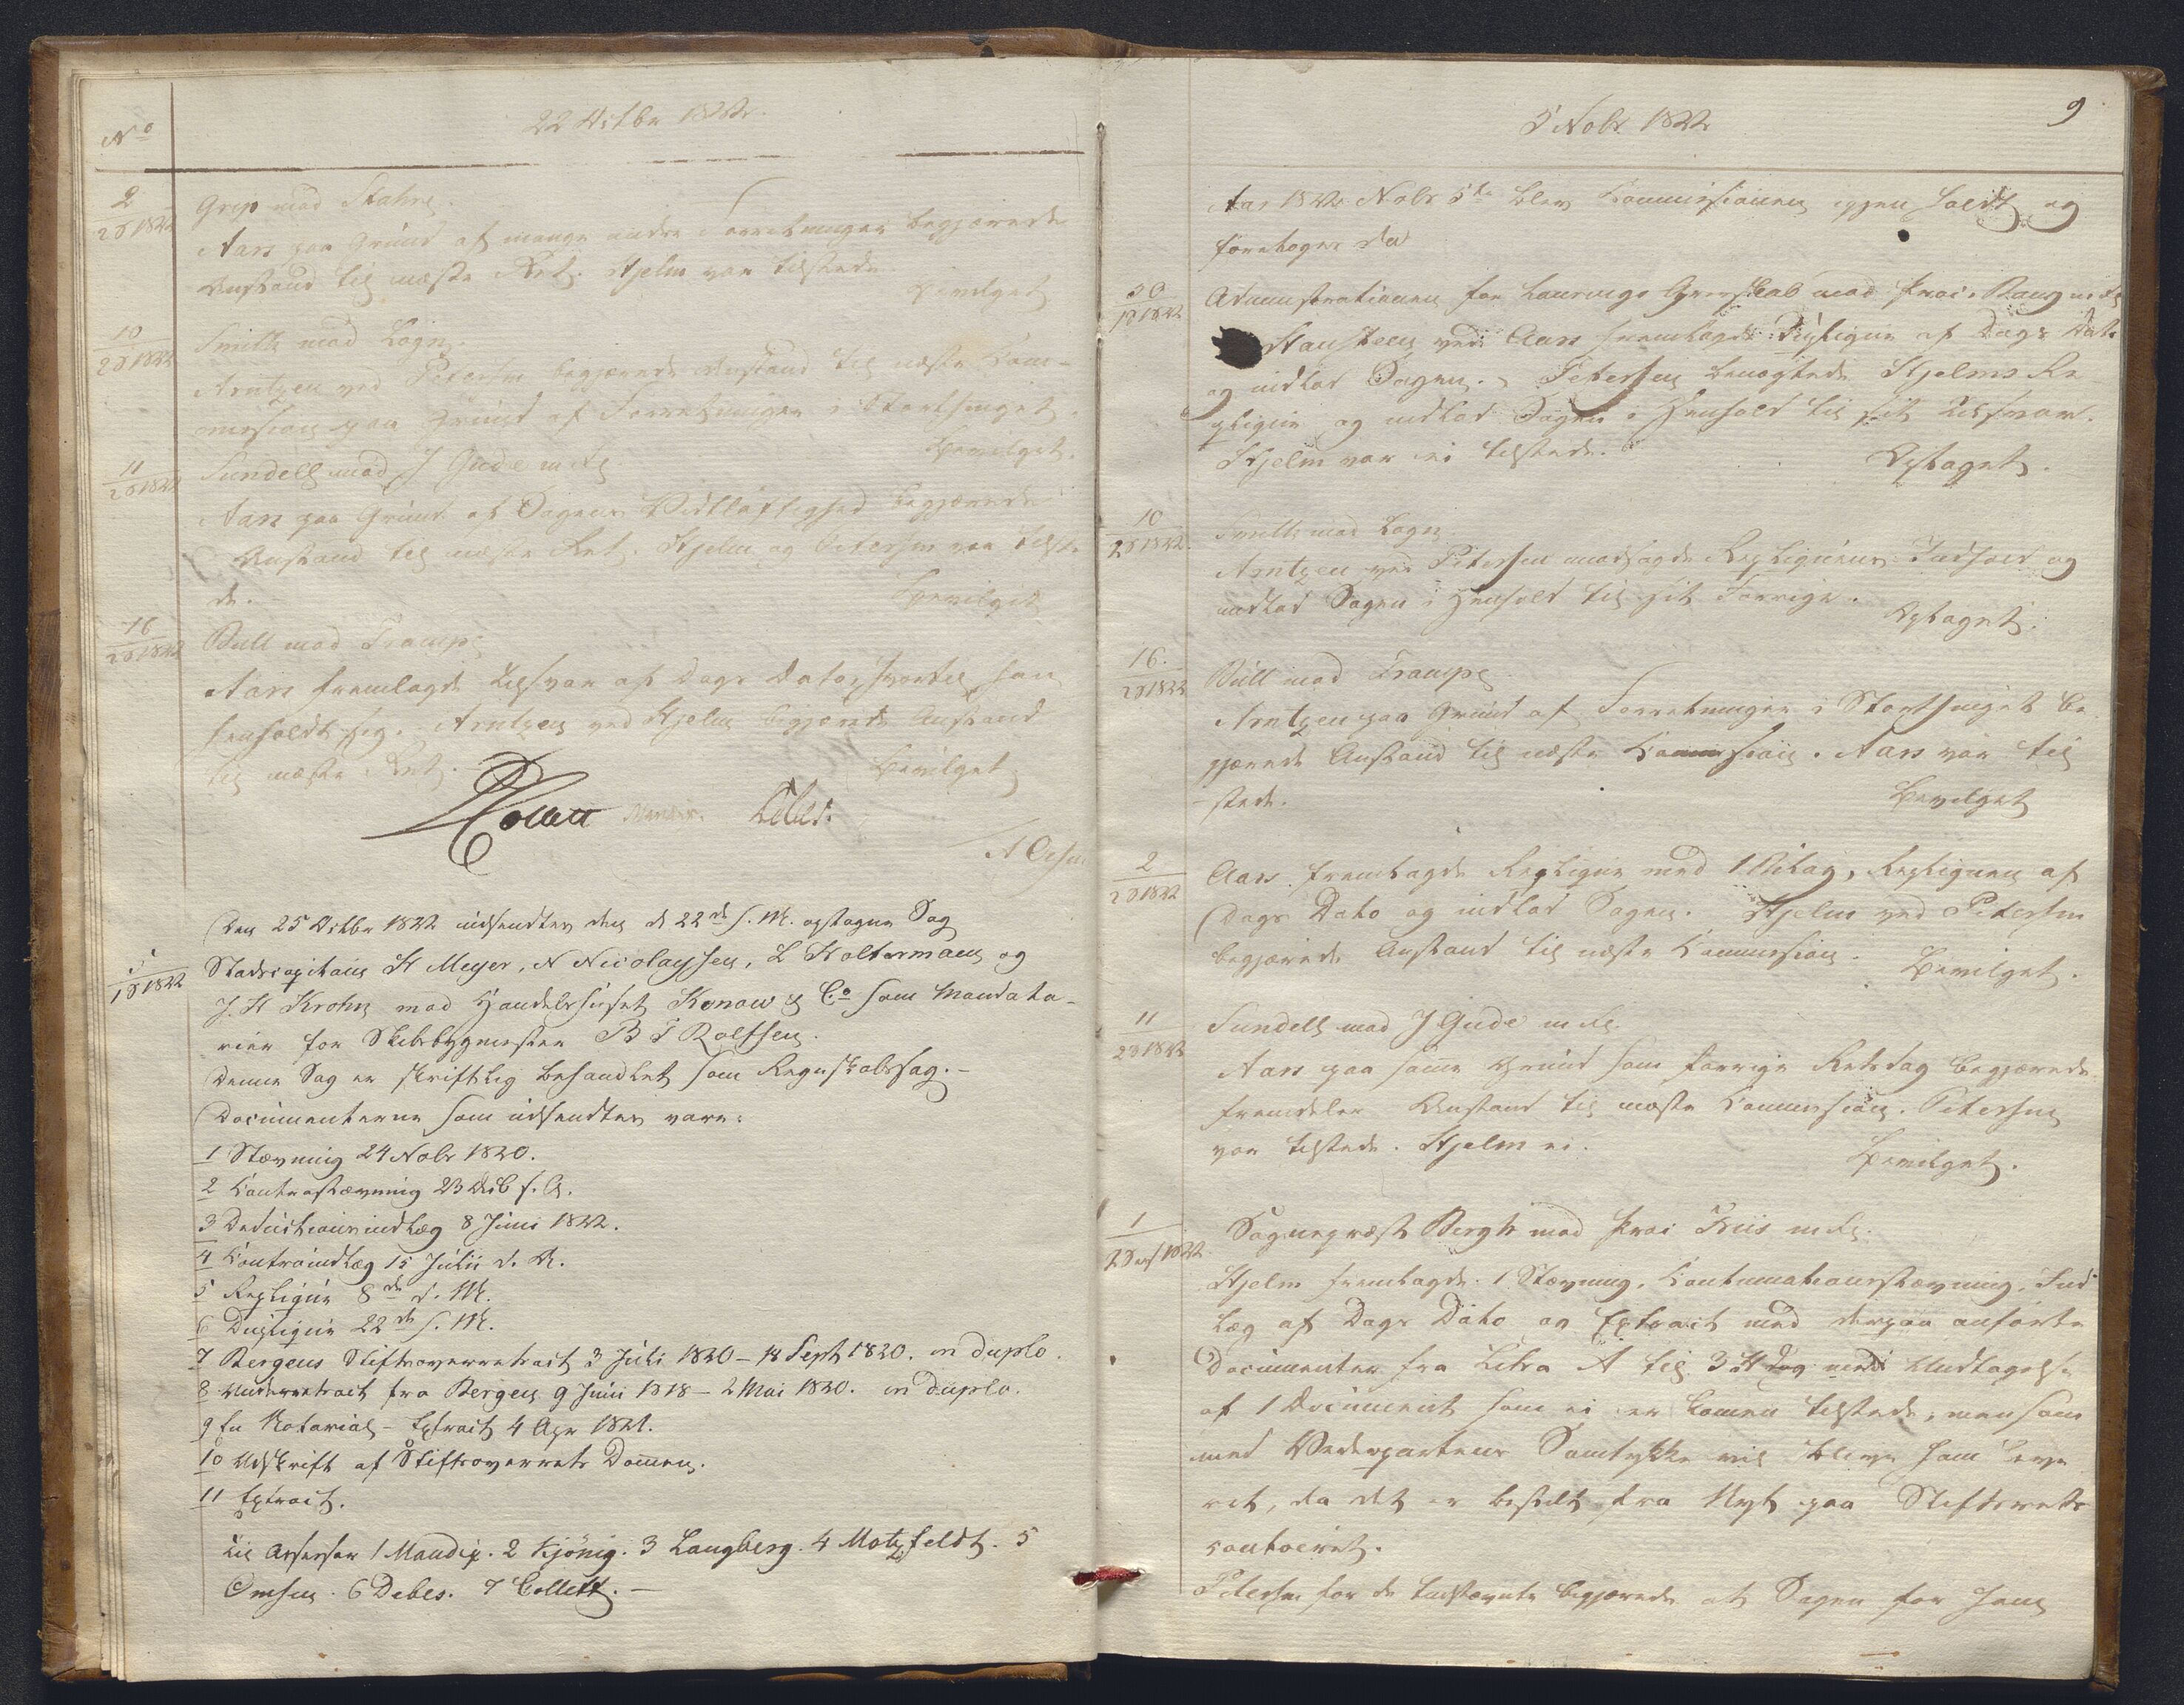 22 Octbr 1822.
No
2
2 S 1822
Grip mod Stahn
Aars paa Grund af mange andre Forretninger begjærede
Anstand til næste Ret. Hjelm var tilstede
bevilget
10
2 S 1822
Smith mod Sogn
Arntzen ved Petersen begjærede Anstand til næste Com-
mission paa Grund af Forretninger i Storthinget.
bevilget.
11
2 S 1822
Sundell mod J Gude m fl
Aars paa Grund af Sagens Vidtløftighed begjærede
Anstand til næste Ret. Hjelm og Petersen var tilste
de.
bevilget
16
2 S 1822
Bull mod Trampe
Aars fremlagde Tilsvar af Dags Dato, hvortil han
henholdt sig. Arntzen ved Hjelm begjærede Anstand
til næste Ret.
bevilget
Collett Mandix. Debes.
Den 25 Octbr 1822 udsendtes den d 22de s. M. optagne Sag
5
1 S 1822
Stadscapitain H Meyer, N Nicolaysen, L Holtermann og
J. H Krohn mod Handelshuset Konow & Co som Mandata-
rier for Skibsbygmester B S Rolfsen.
Denne Sag er skriftlig behandlet som Regnskabssag.-
Documenterne som udsendtes vare:
1 Stævning 24 Nobr 1820.
2 Contrastævning 23 Dcb s. A.
3 Deductionsindlæg 8 Juni 1822.
4 Contraindlæg 15 Julii d. A.
5 Repliqve 8de d. M.
6 Dupliqve 22de s. M.
7 Bergens Stiftsoverretsact 3 Juli 1820 - 18 Sept 1820. in duplo.
8 Underretsact fra Bergen 9 Juni 1818 - 2 Mai 1820. in duplo.
9 En Notarial-Extract 4 Apr 1821.
10 Udskrift af Stiftsoverrets Dommen.
11 Extract.
til Assessor 1 Mandix. 2 Kjönig. 3 Langberg. 4 Motzfeldt. 5
Omsen. 6 Debes. 7 Collett. -
5 Nobr 1822
9
Aar 1822 Nobr 5te blev Commissionen igjen holdt og
foretoges da
Administrationen for Laurvigs Grevskab mod
Hansteen ved Aars fremlagde Dupliqve af Dags Dato
og indlod Sagen. Petersen benægtede Hjelms Re
pliqve og indlod Sagen i Henhold til sit Tilsvar.
Hjelm var ei tilstede.
Optaget.
10
2 S 1822.
Smith mod Sogn
Arntzen ved Petersen modsagde Repliqvens Indhold og
indlod Sagen i Henhold til sit Forrige.
Optaget.
16.
2 S 1822
Bull mod Trampe
Arntzen paa Grund af Forretninger i Storthinget be
gjærede Anstand til næste Commission. Aars var til
stede.
bevilget
2
2 S 1822
Aars fremlagde Repliqve med 1 Bilag, Repliqven af
Dags Dato og indlod Sagen. Hjelm ved Petersen
begjærede Anstand til næste Commission.
bevilget.
11
2 S 1822
Sundell mod J Gude m fl.
Aars paa samme Grund som forrige Retsdag begjærede
fremdeles Anstand til næste Commission. Petersen
var tilstede. Hjelm ei.
bevilget.
1
Sognepræst Bergh mod Friis m fl.
Hjelm fremlagde: 1 Stævning, Continuationsstævning, Ind
læg af Dags Dato og Extract med derpaa anførte
Documenter fra Litra A til 3 H med Undtagelse
af 1 Document som ei er kommen tilstede, men som
med Vederpartens Samtykke vil blive ham leve
ret, da det er bestilt fra Nyt paa Stiftsrets
contoiret.
Petersen for de Indstævnte begjærede at Sagen for ham